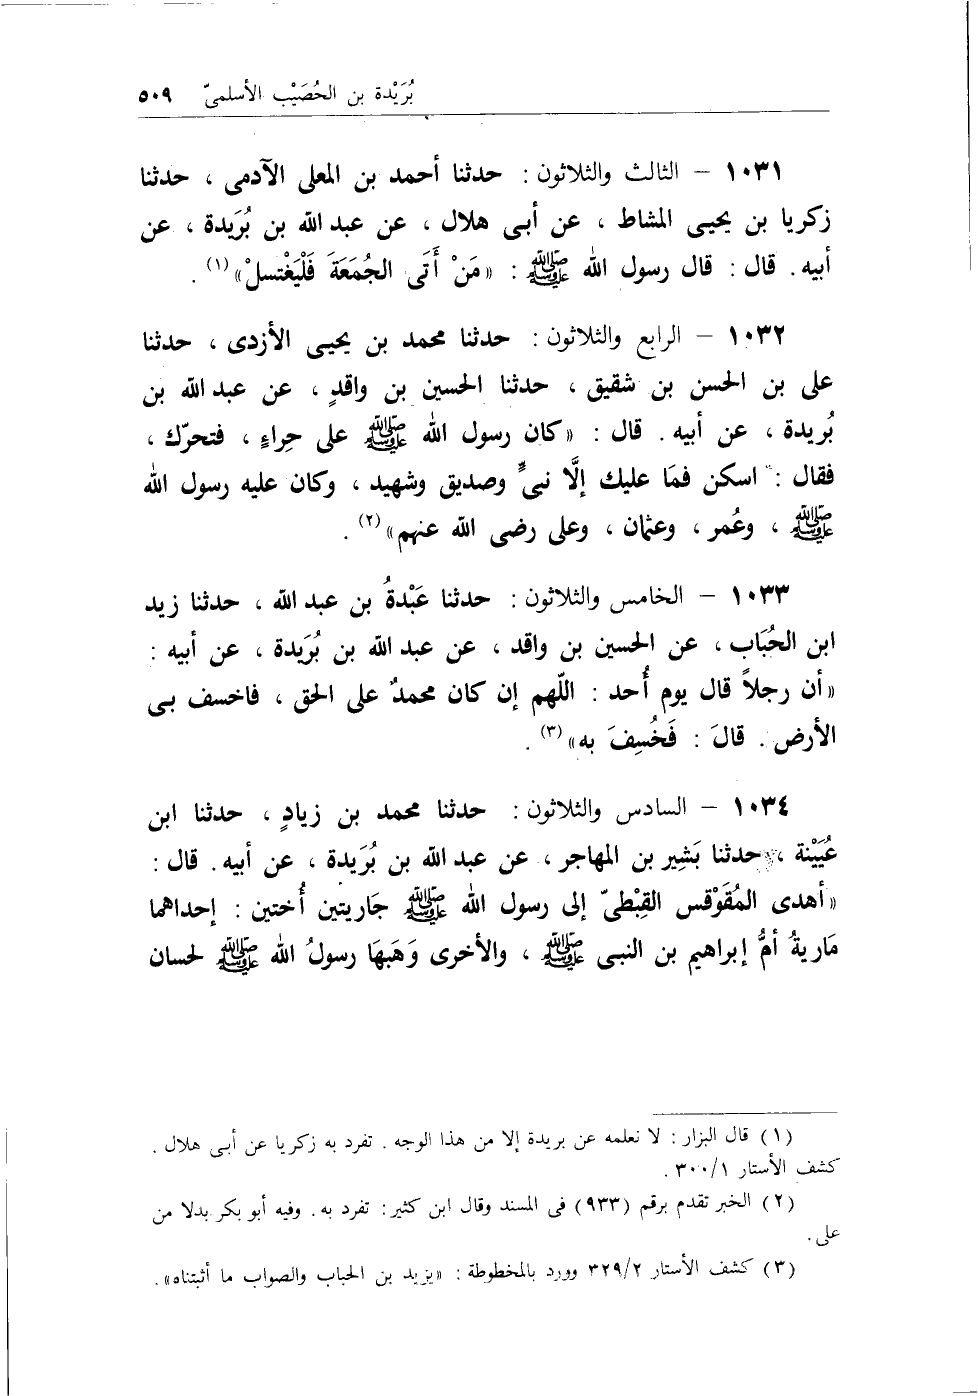 بُرَيْدة بن الحُصَيْب الأسلمىّ ٥٠٩
١٠٣١ – الثالث والثلاثون : حدثنا أحمد بن المعلى الآدمى ، حدثنا
زكريا بن يحيـى المشاط ، عن أبـى هلال ، عن عبد الله بن بُرَيدة ، عن
أبيه . قال : قال رسول الله ﷺ : «مَنْ أَتَى الجُمَعَةَ فَلْيَغْتسلْ»(١) .
١٠٣٢ – الرابع والثلاثون : حدثنا محمد بن يحيـى الأزدى ، حدثنا
على بن الحسن بن شقيق ، حدثنا الحسين بن واقدٍ ، عن عبد الله بن
بُريدة ، عن أبيه . قال : «كان رسول الله ﷺ على حِراءٍ ، فتحرّك ،
فقال : اسكن فمَا عليك إلَّا نبىٌّ وصديق وشهيد ، وكان عليه رسول الله
ﷺ ، وعُمر ، وعثمان ، وعلى رضى الله عنهم»(٢) .
١٠٣٣ – الخامس والثلاثون : حدثنا عَبْدةُ بن عبد الله ، حدثنا زيد
ابن الحُبَاب ، عن الحسين بن واقد ، عن عبد الله بن بُرَيدة ، عن أبيه :
«أن رجلاً قال يوم أُحد : اللّهم إن كان محمدٌ على الحق ، فاخسف بـى
الأرض . قالَ : فَخُسِفَ به»(٣) .
١٠٣٤ – السادس والثلاثون : حدثنا محمد بن زيادٍ ، حدثنا ابن
عُيَيْنة ، حدثنا بَشِير بن المهاجر ، عن عبد الله بن بُرَيدة ، عن أبيه . قال :
«أهدى المُقَوْقس القِبْطىّ إلى رسول الله ﷺ جَاريتين أُختين : إحداهما
مَاريةُ أمُّ إبراهيم بن النبـى ﷺ ، والأخرى وَهَبهَا رسولُ الله ﷺ لحسان
(١) قال البزار : لا نعلمه عن بريدة إلا من هذا الوجه . تفرد به زكريا عن أبـى هلال .
كشف الأستار ٣٠٠/١ .
(٢) الخبر تقدم برقم (٩٣٣) فى المسند وقال ابن كثير : تفرد به . وفيه أبو بكر بدلا من
على .
(٣) كشف الأستار ٣٢٩/٢ وورد بالمخطوطة : «يزيد بن الحباب والصواب ما أثبتناه» .